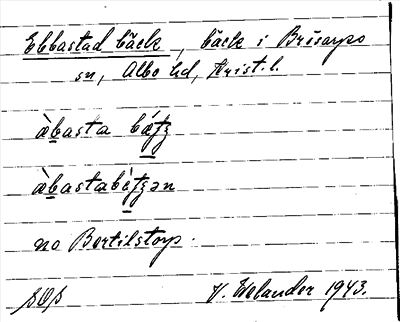 Ebbastad bäck, bäck i Brösarps
sn, Albo hd, Krist. l.
æ̀basta bǽʈʐ
æ̀bastabæ̀ʈʐən
no Bertilstorp.
V. Welander 1943.